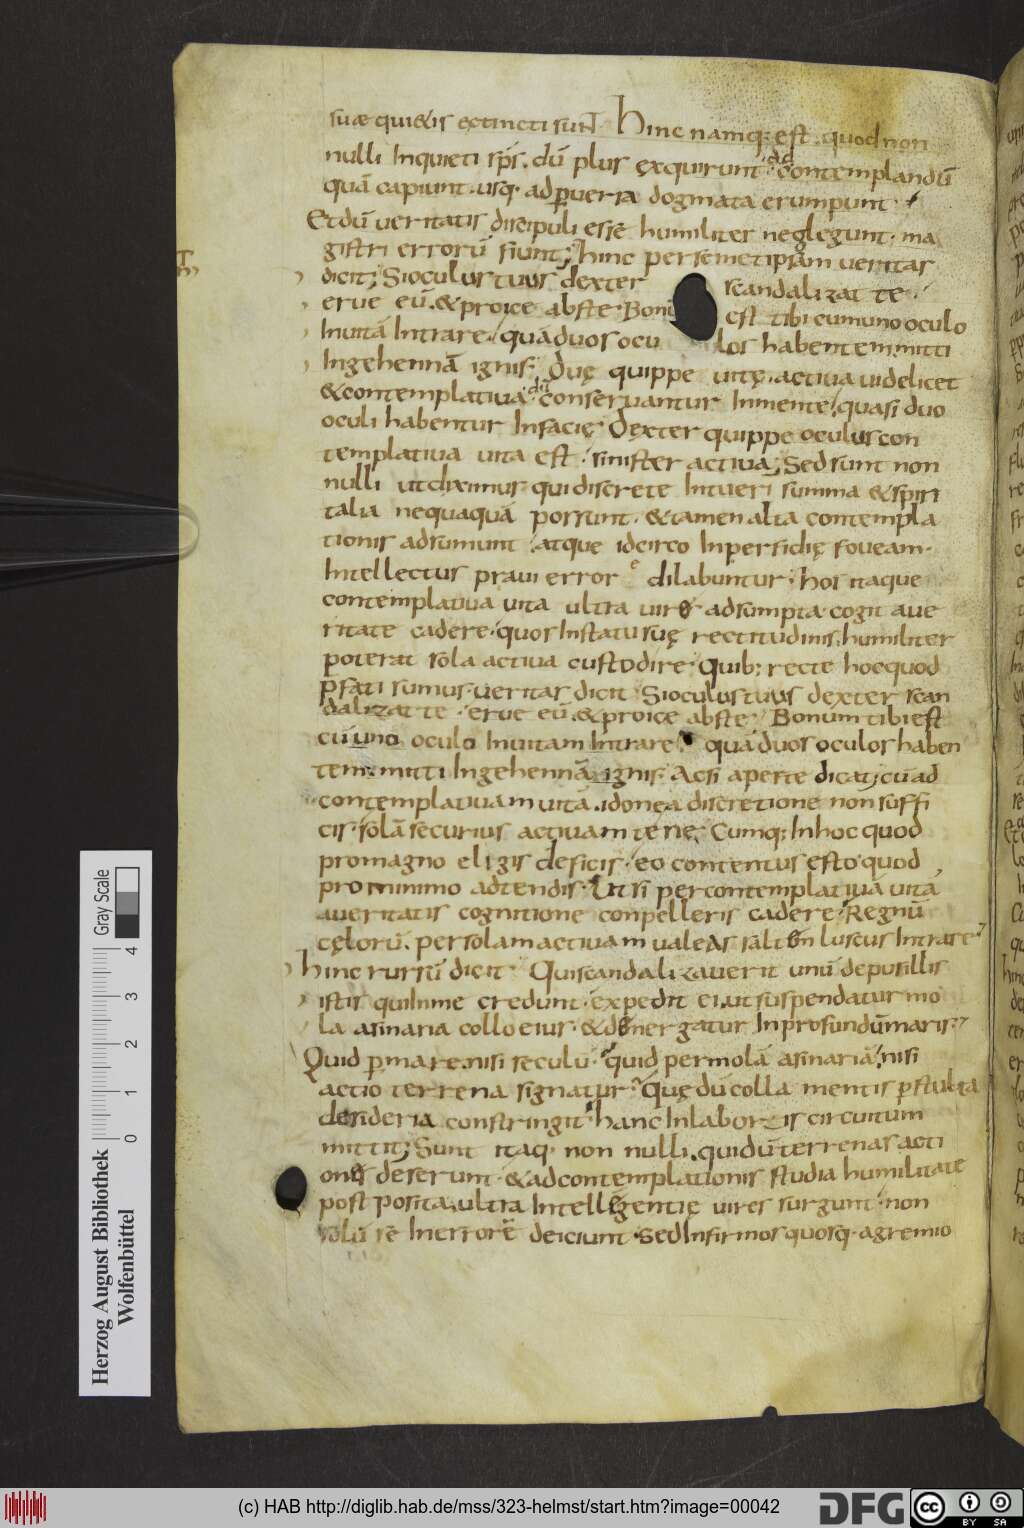 suæ qui&is extincti sunt Hinc namq; est. quod non
nulli Inquieti sp̄s. dū plus exquirunt ad contemplandū
quā capiunt. usq; ad p̱uersa dogmata erumpunt
Et dū veritatis discipuli esse humiliter neglegunt. ma
gistri errorū fiunt; hinc per semetipsam veritas
dicit; Si oculus tuus dexter scandalizat te
erue eū. & proice abs te. Bonū est tibi cum uno oculo
In uitā Intrare. quā duos oculos habentem mitti
In gehennā ignis. Duę quippe uitę. activa uidelicet
& contemplativa. dū conseruantur In mente. quasi duo
oculi habentur In facie. Dexter quippe oculus con
templativa uita est. sinister activa; Sed sunt non
nulli ut diximus qui discrete Intueri summa & spiri
talia nequaquā possunt. & tamen alta contempla
tionis adsumunt. atque idcirco In perfidię foueam.
Intellectus praui errore dilabuntur. hos itaque
contemplativa uita ultra uires adsumpta cogit a ue
ritate cadere. quos In statu suę rectitudinis. humiliter
poterat sola activa custodire. Quib; recte hoc quod
p̄fati sumus. veritas dicit. Si oculus tuus dexter scan
dalizat te. erue eū. & proice abs te. Bonum tibi est
cū uno oculo In uitam Intrare. quā duos oculos haben
tem. mitti In gehennā ignis. Ac si aperte dicat; cū ad
contemplativam uitā. idonea discretione non suffi
cis. solā securius activam tene. Cumq; In hoc quod
pro magno eligis deficis. eo contentus esto. quod
pro minimo adtendis. Ut si per contemplativā uitā
a ueritatis cognitione conpelleris cadere. Regnū
cęlorū. per solam activam ualeas saltēn luscus Intrare
hinc rursū dicit. Qui scandalizauerit unū de pusillis
istis qui In me credunt. expedit ei. ut suspendatur mo
la asinaria collo eius. & demergatur In profundū maris
Quid p̱ mare. nisi seculū. quid per molā asinariā. nisi
actio terrena signatur. Quę dū colla mentis p̱ stulta
desideria constringit hanc In laboris circuitum
mittit; Sunt itaq; non nulli. qui dū terrenas acti
ones deserunt. & ad contemplationis studia humilitate
postposita. ultra Intellegentię uires surgunt. non
solū se In errorē deiciunt. Sed Infirmos quosq; a gremio
Herzog August Bibliothek
Wolfenbüttel
Gray Scale
0 1 2 3 4
(c) HAB http://diglib.hab.de/mss/323-helmst/start.htm?image=00042
DFG
cc BY SA